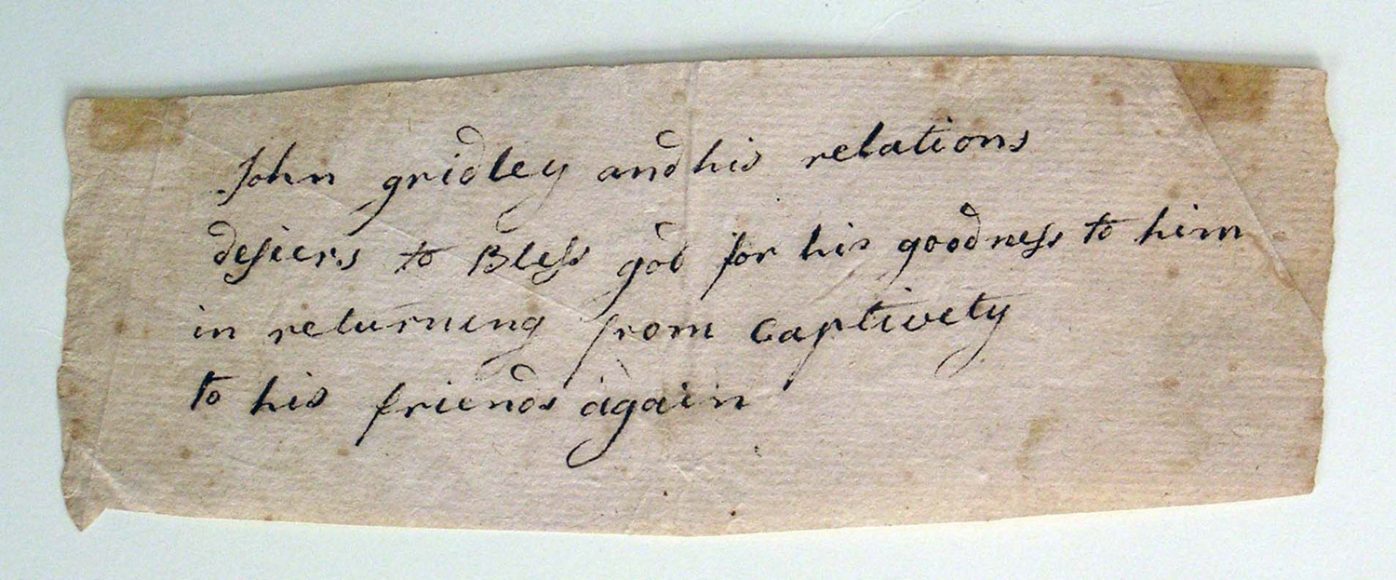 John gridley and his relations
desiers to Bless god for his goodness to him
in returning from captivety
to his friends again